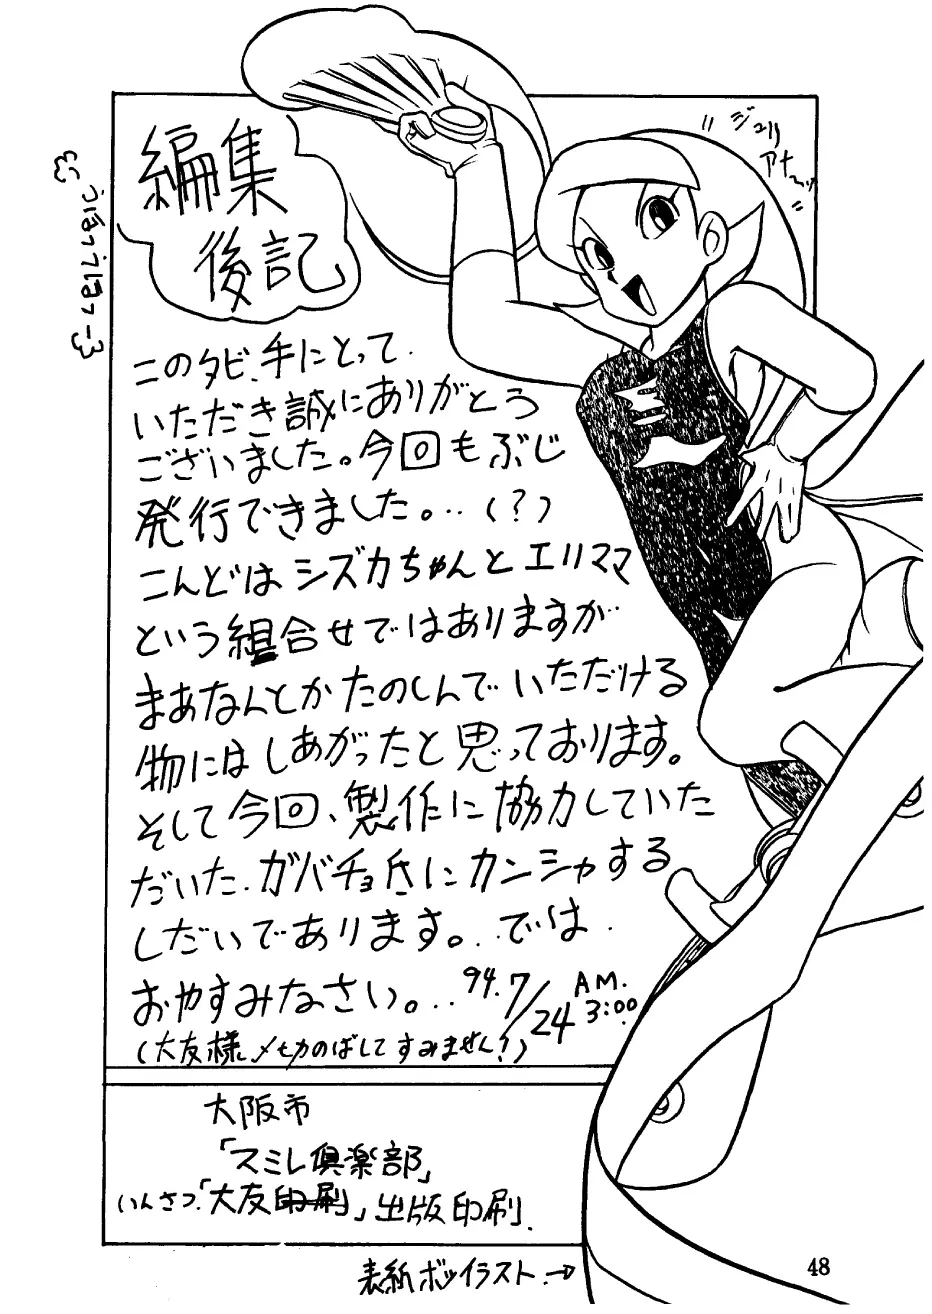 編集
後記
〃ジュリ
アナ〜〃
このタビ、手にとって
いただき誠にありがとう
ございました。今回もぶじ
発行できました。‥(?)
こんどはシズカちゃんとエリママ
という組合せではありますが
まあなんとかたのしんでいただける
物にはしあがったと思っております。
そして今回、製作に協力していた
だいた、ガバチョ氏にカンシャする
しだいであります。‥では
おやすみなさい。‥94.7/24 AM.3:00
(大友様、〆切のばしてすみません!)
大阪市
「スミレ倶楽部」
いんさつ.「大友印刷」出版印刷.
表紙ボツイラスト.→
48